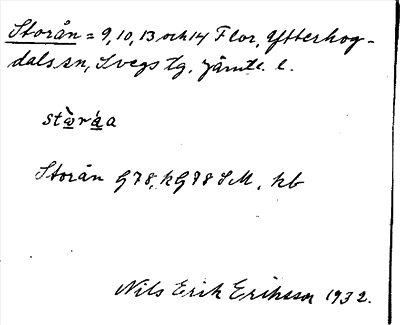 Storån = 9, 10, 13 och 14 Flor, Ytterhog-
dals sn, Svegs tg, Jämtl. l.
stὼrá̲a
Storån G78, kG78 SM, kb
Nils Erik Eriksson 1932.